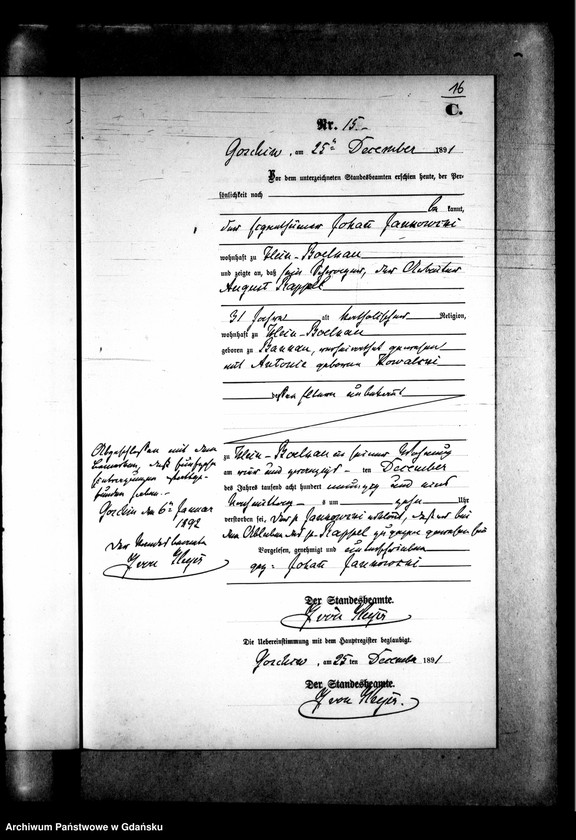 16
C.
Nr. 15.
Goschin, am 25ten December 1891
Vor dem unterzeichneten Standesbeamten erschien heute, der Per-
sönlichkeit nach
kannt,
der Eigenthümer Johann Jannowski
wohnhaft zu Klein-Boelkau
und zeigte an, daß sein Schwager, der Arbeiter
August Kappel
31 Jahre alt katholischer Religion,
wohnhaft zu Klein-Boelkau
geboren zu verheirathet gewesen
mit Antonie geborene Kowalski
dessen Eltern unbekannt
zu Klein-Boelkau in seiner Wohnung
am vier und zwanzigsten December
des Jahres tausend acht hundert neunzig und eins
Vormittags um zehn Uhr
verstorben sei, der p. Jannowski erklärt, daß er bei
dem Ableben des p. Kappel zugegen gewesen sei
Vorgelesen, genehmigt und unterschrieben
gez: Johann Jannowski
Der Standesbeamte.
J von Heyer
Die Uebereinstimmung mit dem Hauptregister beglaubigt.
Goschin, am 25ten December 1891
Der Standesbeamte.
J von Heyer.
Abgeschlossen mit dem
Bemerken, daß fünfzehn
Eintragungen stattge-
funden haben.
Goschin den 6ten Januar
1892
Der Standesbeamte
J von Heyer
Archiwum Państwowe w Gdańsku